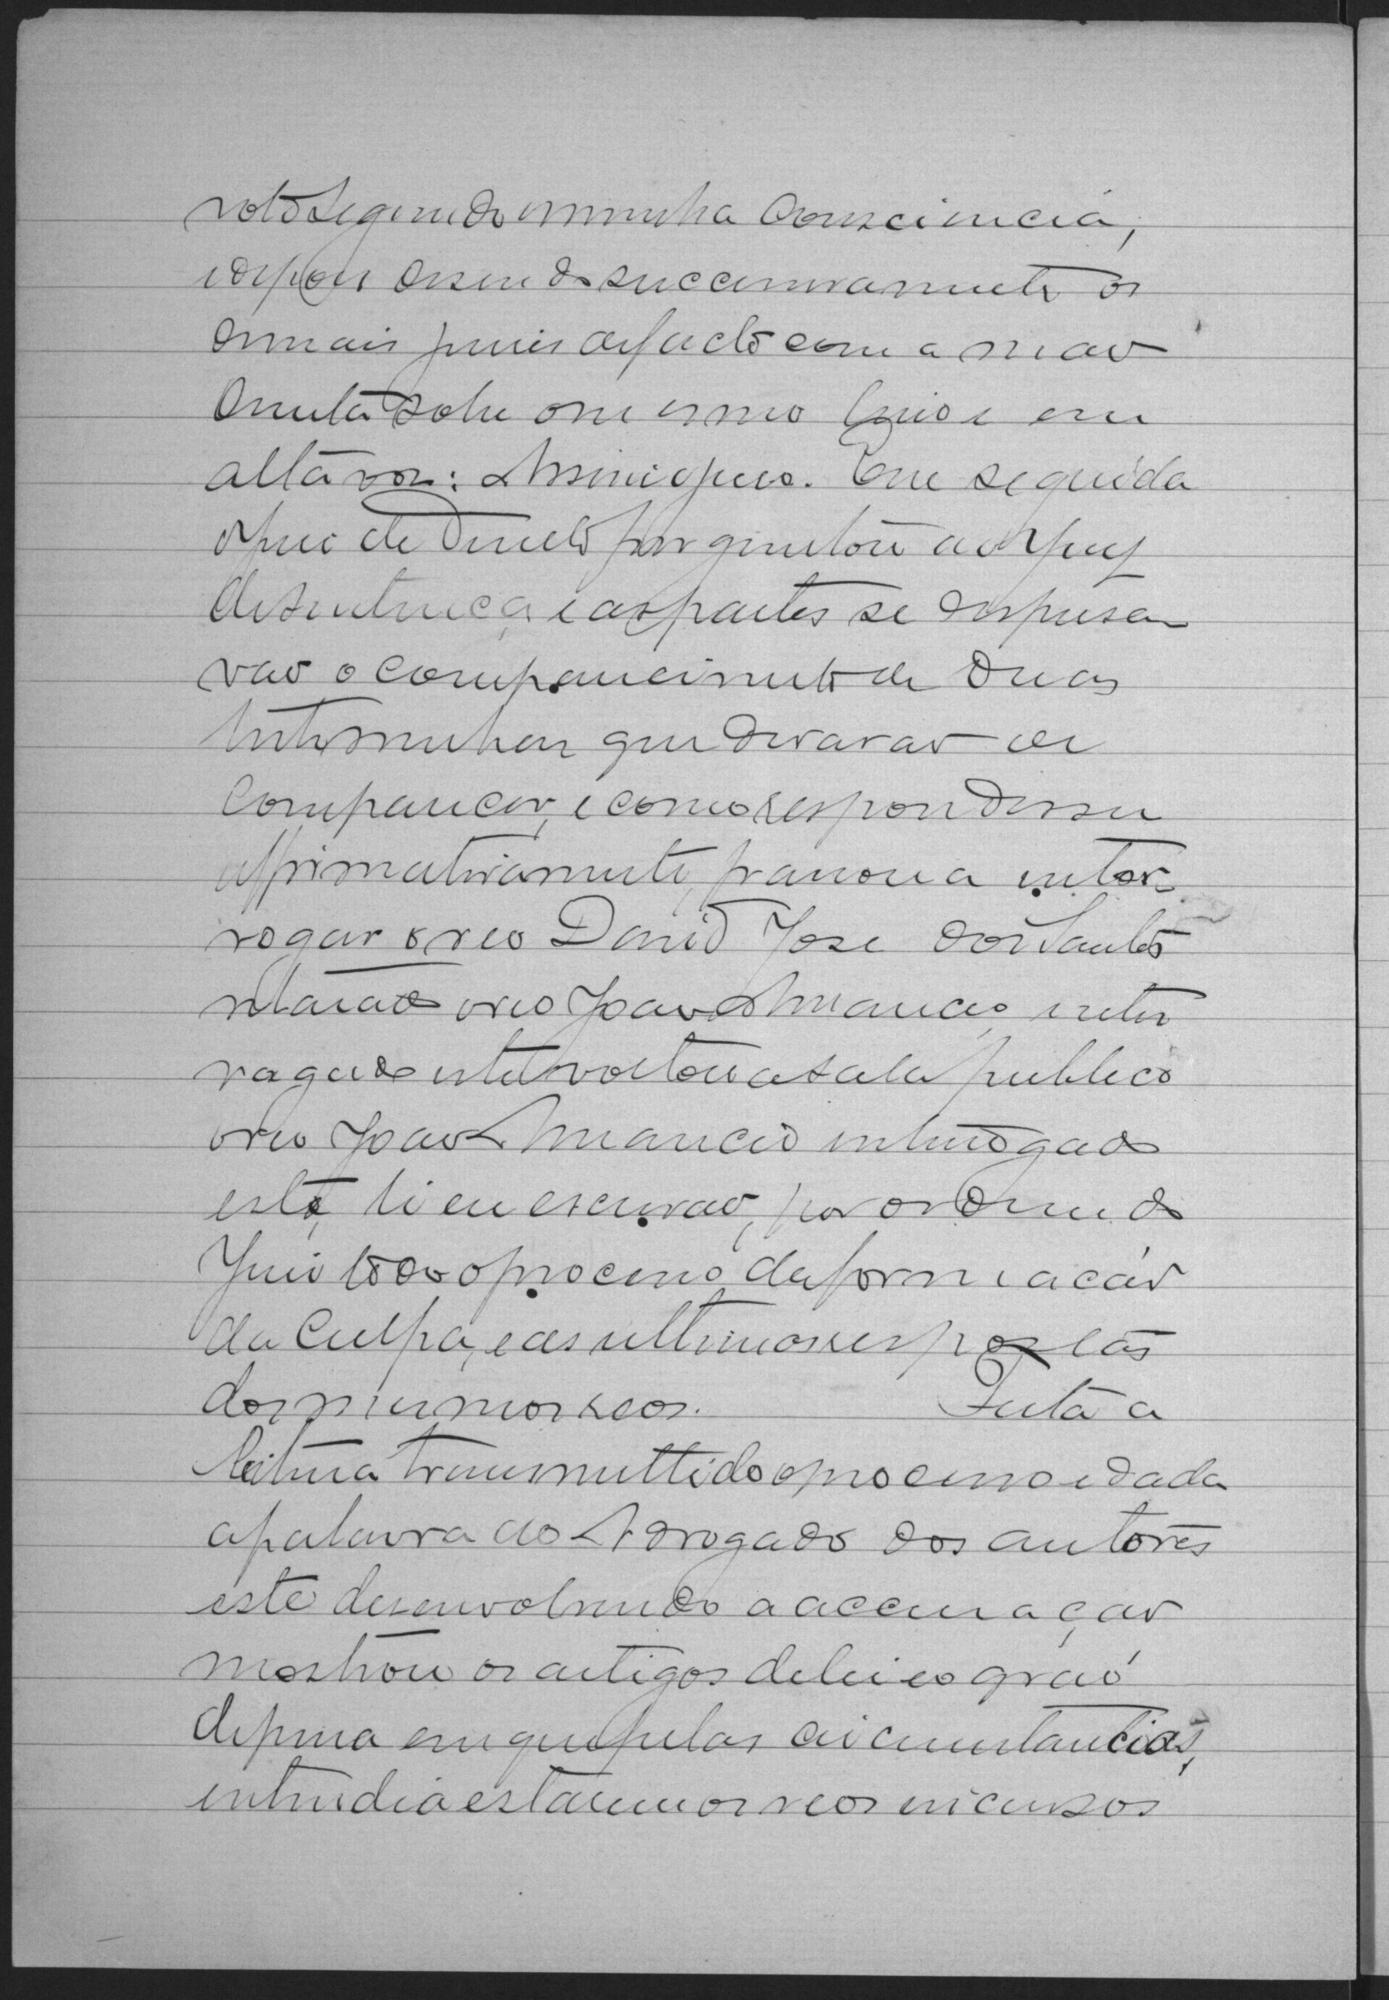 voto segundo minha consciencia,
e depois dissendo successivamente os
demais juises de facto com a mão
direita sobre o mesmo livro e em
alta voz: Assim o juro. Em seguida
o juiz de Direito perguntou ao Jury
de sentença e as partes se dispensa
vão o comparecimento de duas
testemunhas que deixarão de
comparecer, e como respondessem
affirmativamente, passou a inter-
rogar o reo David José dos Santos
retirado o reo João Amancio, inter
rogado este voltou a sala publico
o reo João Amancio interrogado
este, li eu escrivão, por ordem do
Juiz todo o processo da formação
da culpa, e as ultimas respostas
dos mesmos reos. Feita a
leitura transmittido o processo e dada
a palavra ao Advogado dos autores
este desenvolvendo a accusação
mostrou os artigos de lei e o gráo
de pena em que pelas circunstancias,
entendia estarem os reos incursos